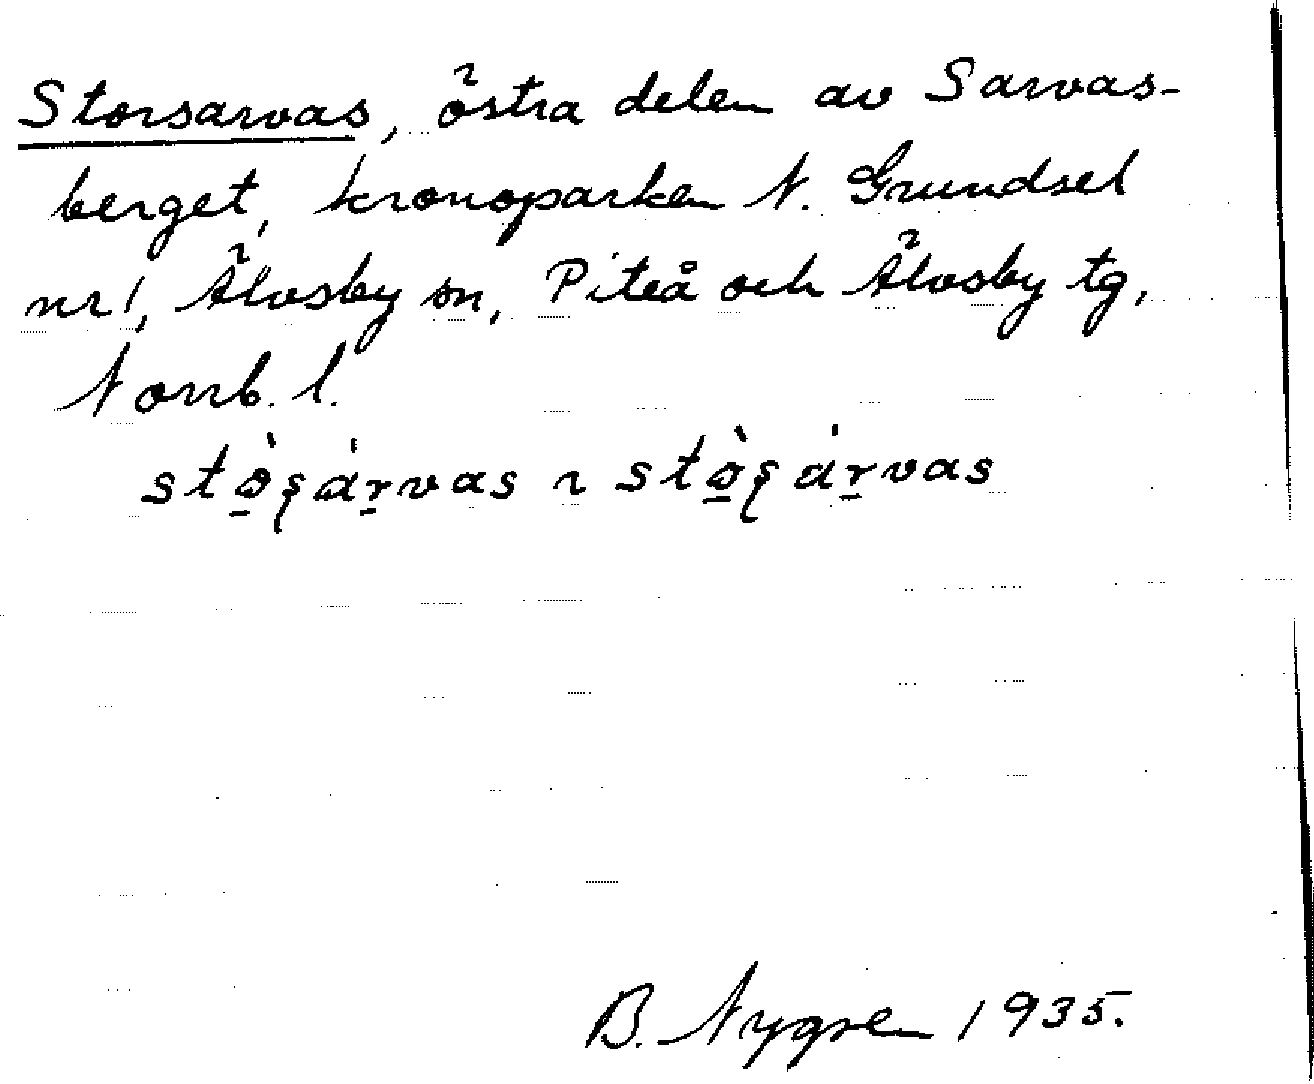 Storsarvas, östra delen av Sarvas-
berget, kronoparken N. Grundsel
nr 1, Älvsby sn, Piteå och Älvsby tg,
Norrb. l.
stò̱ʂáṟvas ~ stò̱ʂáṟvas
B. Nygren 1935.